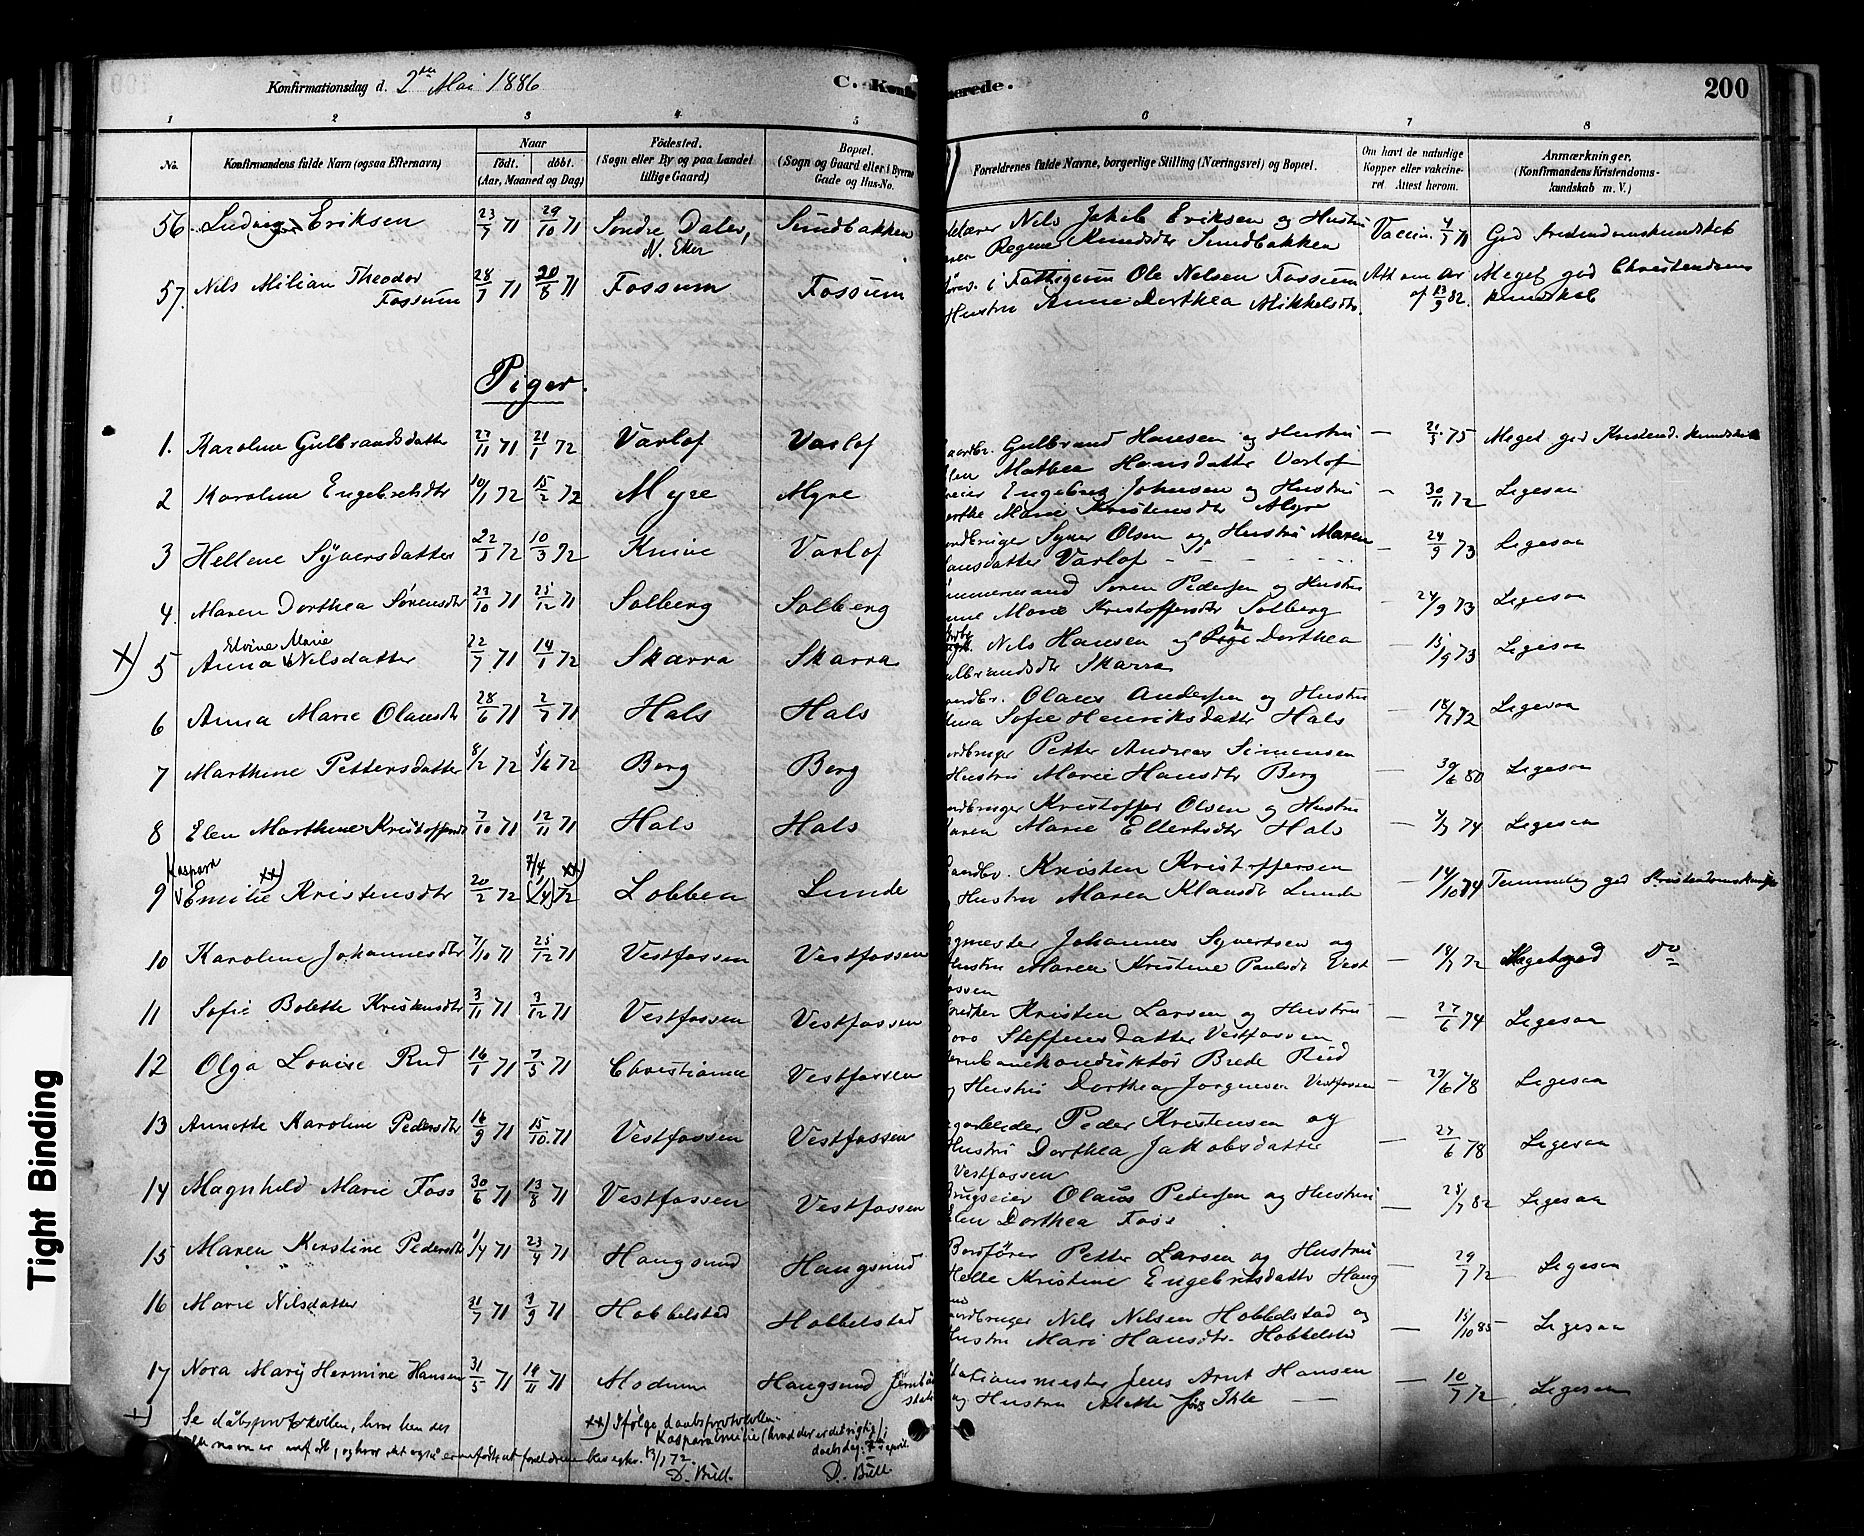 Konfirmationsdag d. 2den Mai 1886
C. Konfirmerede.
200
1 2 3 4 5 6 7 8
No. Konfirmandens fulde Navn (ogsaa Efternavn) Naar født. døbt. (Aar, Maaned og Dag) Fødested. (Sogn eller By og paa Landet tillige Gaard) Bopæl. (Sogn og Gaard eller i Byerne Gade og Hus-No. Forældrenes fulde Navne, borgerlige Stilling (Næringsvei) og Bopæl. Om havt de naturlige Kopper eller vakcineret. Attest herom. Anmærkninger. (Konfirmandens Kristendomskundskab m. V.)
56 Ludvig Eriksen 23/7 71 29/10 71 Søndre Daler, N. Eker Sundbakken Nils Jakob Eriksen og Hustru Regine Knudsdtr Sundbakken Vaccin. God Kristendomskundskab
57. Nils Milian Theodor Fossum 28/7 71 20/8 71 Fossum Fossum i Fattigcom Ole Nelsen Fossum Hustru Anne Dorthea Mikkelsdtr. Att om ar af 13/9 82. Meget god Christendoms kundskab
Piger.
1. Karoline Gulbrandsdatter 27/11 71 21/1 72 Varlof Varlof Gulbrand Hansen og Hustru Mathea Hansdatter Varlof — 21/5 75 Meget god Kristend. kundskab
2 Karoline Engebretsdtr 10/1 72 15/2 72 Myre Myre Engebret Johnsen og Hustru Marie Kristensdtr Myre — 30/11 72 Ligesaa
3 Hellene Syversdatter 22/1 72 10/3 72 Knive Varlof Syver Olsen og Hustru Maren Hansdatter Varlof — 24/9 73 Ligesaa
4. Maren Dorthea Sørensdtr 23/10 71 25/12 71 Solberg Solberg Søren Pedersen og Hustru Marie Kristoffersdtr Solberg — 24/9 73 Ligesaa
x) 5 Anna Elvine Marie Nilsdatter 22/7 71 14/1 72 Skarra Skarra Nils Hansen og Pige Dorthea Gulbrandsdtr Skarra — 15/9 73 Ligesaa
6 Anna Marie Olausdtr 28/6 71 2/7 71 Hals Hals Olaus Andersen og Hustru Sofie Henriksdatter Hals — 18/7 72 Ligesaa
7 Marthine Pettersdatter 8/2 72 5/6 72 Berg Berg Petter Andreas Simensen Hustru Marie Hansdtr Berg — 30/6 80 Ligesaa
8 Elen Marthine Kristoffersdtr 7/10 71 12/11 71 Hals Hals Kristoffer Olsen og Hustru Maren Marie Ellertsdtr Hals — 74 Ligesaa
9 Kaspara Emilie xx) Kristensdtr 20/2 72 7/4 (1/4) 72 xx) Lobben Lunde Kristen Kristoffersen Hustru Maren Klausdtr Lunde — 14/10 74 Temmelig god Kristendomskundsk
10 Karoline Johannesdtr 7/10 71 25/12 71 Vestfossen Vestfossen Johannes Syvertsen og Hustru Maren Kristine Paulsdtr Vestfossen — 18/7 72 Meget god Do
11 Sofie Bolette Kristensdtr 3/11 71 3/12 71 Vestfossen Vestfossen Snedker Kristen Larsen og Hustru Steffensdatter Vestfossen — 27/6 74 Ligesaa
12 Olga Lovise Rud 16/1 71 7/5 71 Christiania Vestfossen Jernbanekonduktør Brede Rud og Hustru Dorthea Jørgensen Vestfossen — 27/6 78 Ligesaa
13 Annette Karoline Pedersdtr 16/9 71 15/10 71 Vestfossen Vestfossen Peder Kristensen og Hustru Dorthea Jakobsdatter Vestfossen — 27/6 78 Ligesaa
14 Magnhild Marie Foss 30/6 71 13/8 71 Vestfossen Vestfossen Brugseier Olaus Pedersen og Hustru Elen Dorthea Foss — 25/7 82 Ligesaa
15 Maren Kirstine Pedersdtr 1/4 71 23/4 71 Hougsund Hougsund Petter Larsen og Hustru Helle Kristine Engebretsdatter Hougsund — 29/7 72 Ligesaa
16 Marie Nilsdatter 21/7 71 3/9 71 Hobbelstad Hobbelstad Gaardbruger Nils Nilsen Hobbelstad og Hustru Mari Hansdtr. Hobbelstad — 15/10 85 Ligesaa
17 Nora Mary Hermine Hansen 31/5 71 18/11 71 Modum Hougsund Jernbane stat. Stationsmester Jens Arnt Hansen og Hustru Mette født Ihle — 10/7 72 Ligesaa
x) Se dåbsprotokollen, hvor hendes fulde navn er anført, og hvor det også er anført at forældrene blev egtev. 13/1 72. D. Bull.
xx) Ifølge daabsprotokollen Kaspara Emilie (hvad der er det rigtige); daabsdag: 7de april. D. Bull
Tight Binding